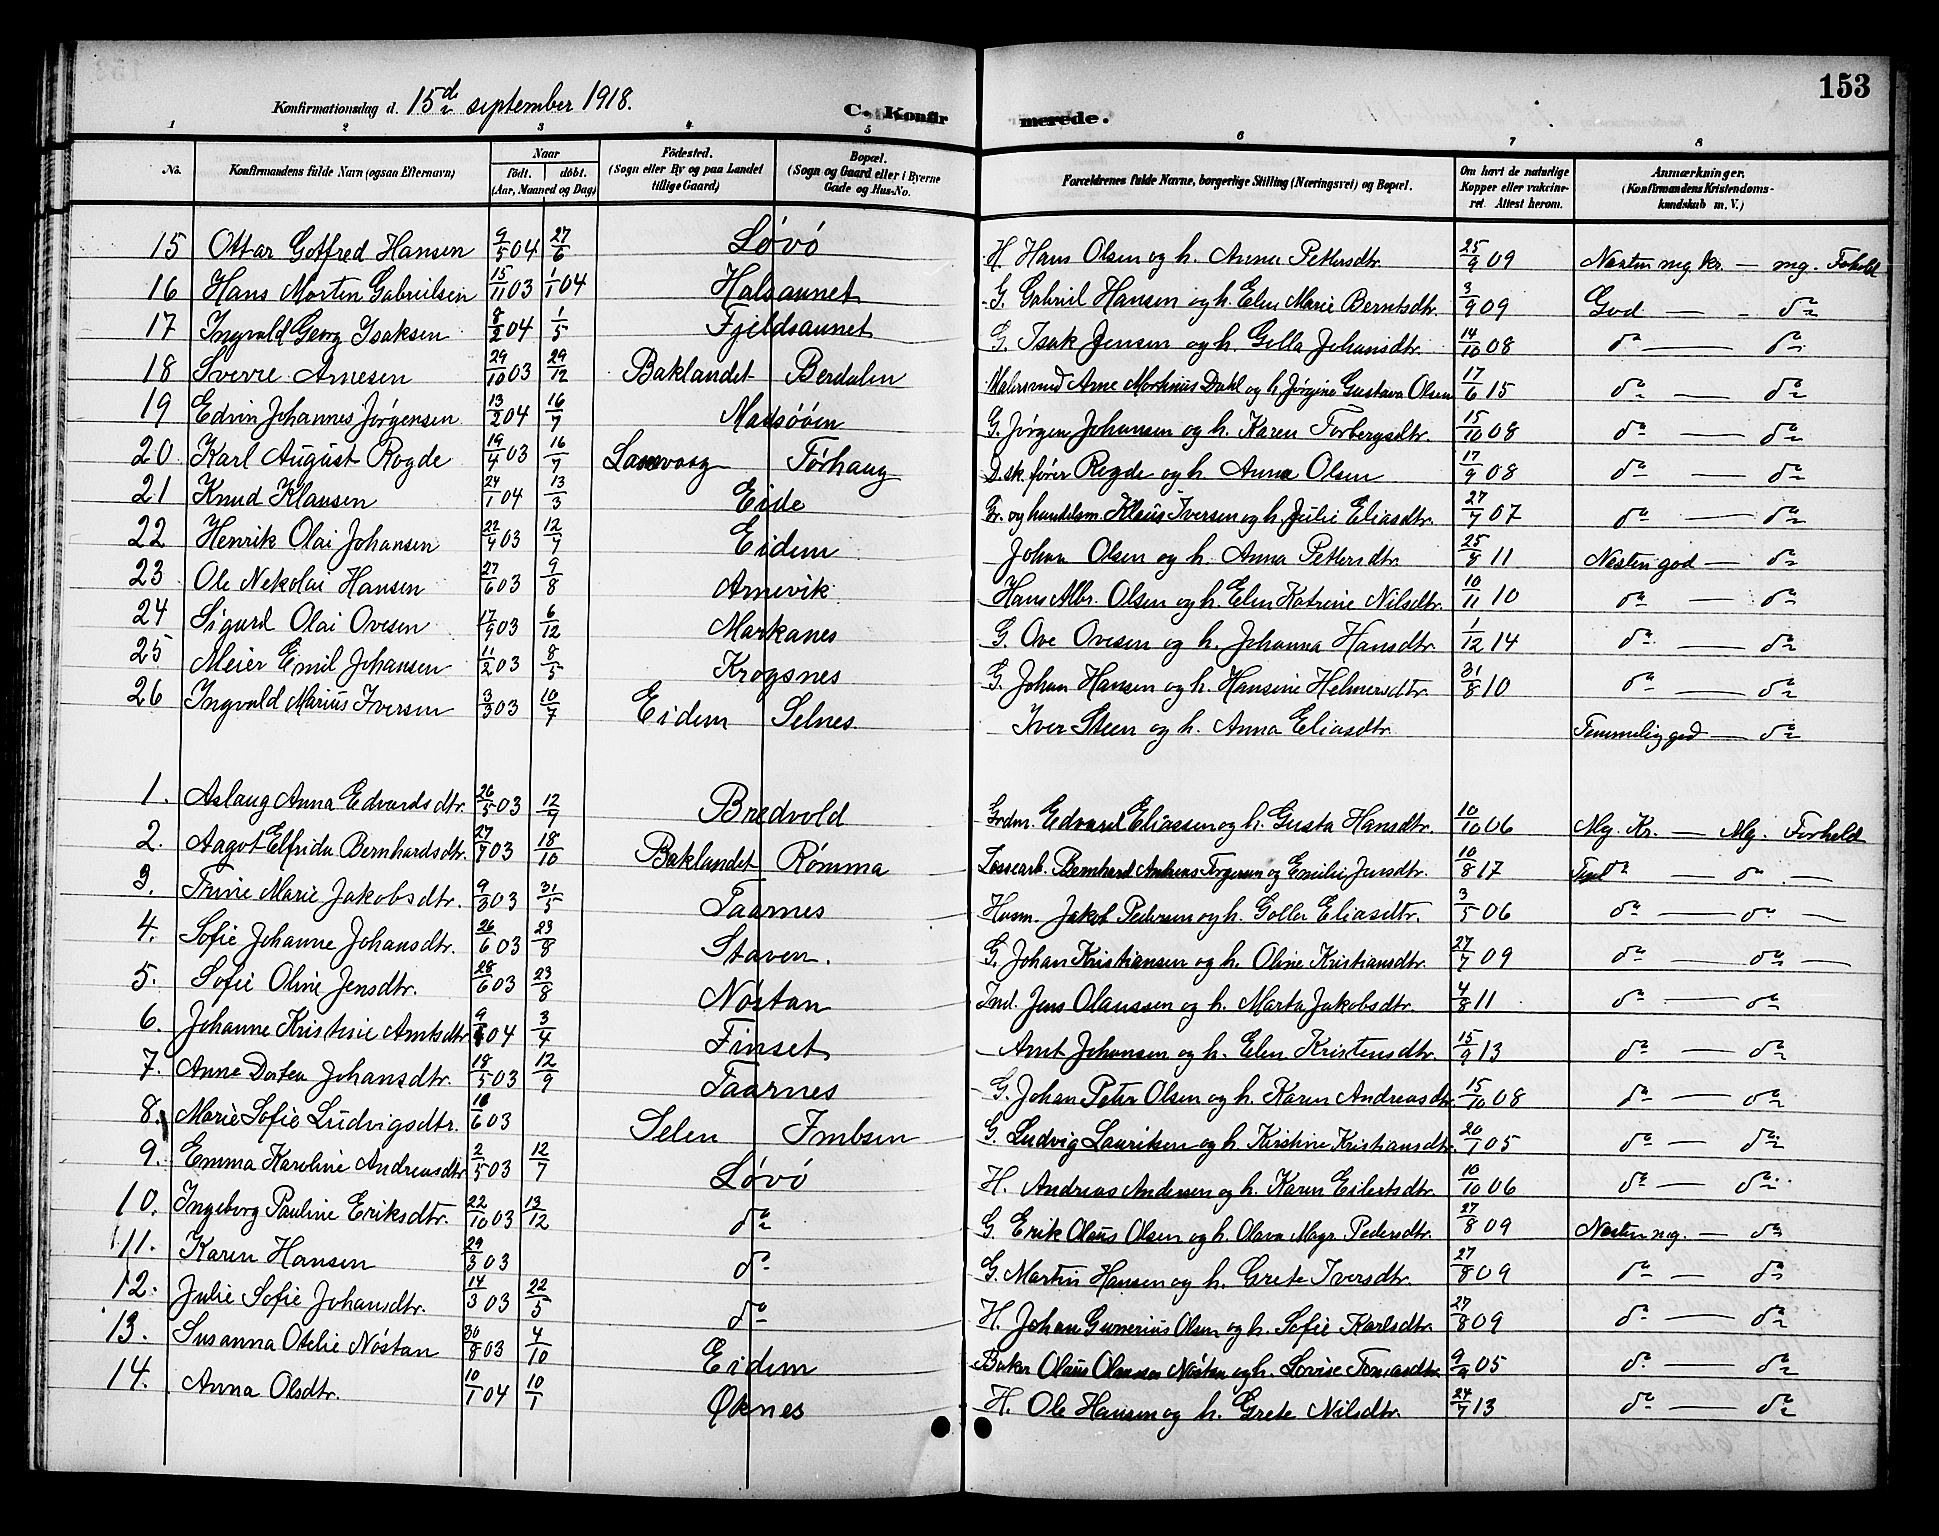 153
Konfirmationsdag d. 15de september 1918.
C. Konfirmerede.
1 2 3 4 5 6 7 8
No. Konfirmandens fulde Navn (ogsaa Efternavn) Naar født. døbt. (Aar, Maaned og Dag) Födested. (Sogn eller By og paa Landet tillige Gaard) Bopæl. (Sogn og Gaard eller i Byerne Gade og Hus-No. Forældrenes fulde Navne, borgerlige Stilling (Næringsvei) og Bopæl. Om havt de naturlige Kopper eller vakcineret. Attest herom. Anmærkninger. (Konfirmandens Kristendomskundskab m. V.)
15 Ottar Gotfred Hansen 9/5 04 27/6 Løvö H. Hans Olsen og h. Anna Pettersdtr. 25/9 09 Nesten mg. kr. — mg. Forhold
16 Hans Morten Gabrielsen 15/11 03 1/1 04 Halsaunet G. Gabriel Hansen og h. Elen Marie Berntsdtr. 3/9 09 God — do
17 Ingvald Georg Isaksen 8/2 04 1/5 Fjeldsaunet G. Isak Jensen og h. Golla Johansdtr. 14/10 08 do — do
18 Sverre Arnesen 29/10 03 29/12 Baklandet Berdalen Malersvend Arne Martinus Dahl og h. Jørgine Gustava Olsen 17/6 15 do — do
19 Edvin Johannes Jørgensen 13/2 04 16/7 Madsøöen G. Jörgen Johansen og h. Karen Torbergsdtr. 15/10 08 do — do
20 Karl August Rogde 19/4 03 16/7 Törhaug D.sk.fører Rogde og h. Anna Olsen 17/9 08 do — do
21 Knud Klausen 24/1 04 13/3 Eide Gr. og handelsm. Klaus Iversen og h. Julie Eliasdtr. 27/7 07 do — do
22 Henrik Olai Johansen 22/4 03 12/7 Eidem Johan Olsen og h. Anna Pettersdtr. 25/8 11 Nesten god — do
23 Ole Nekolai Hansen 27/6 03 9/8 Arnevik Hans Albr. Olsen og h. Elen Katrine Nilsdtr. 10/11 10 do — do
24 Sigurd Olai Ovesen 17/9 03 6/12 Markanes G. Ove Ovesen og h. Johanna Hansdtr. 1/12 14 do — do
25 Meier Emil Johansen 11/2 03 8/5 Krogsnes G. Johan Hansen og h. Hansine Helmersdtr. 31/8 10 do — do
26 Ingvald Marius Iversen 3/3 03 10/7 Eidem Selnes Iver Steen og h. Anna Eliasdtr. Temmelig god — do
1. Aslaug Anna Edvardsdtr. 26/5 03 12/7 Bredvold Grdm. Edvard Eliassen og h. Gusta Hansdtr. 10/10 06 Mg. Kr. — Mg. Forhold
2. Aagot Elfrida Bernhardsdtr. 27/7 03 18/10 Baklandet Römma Lossearb. Bernhard Torgersen og Emilie Jensdtr. 10/8 17 do — do —
3. Trine Marie Jakobsdtr. 9/3 03 31/5 Taarnes Husm. Jakob Pedersen og h. Golla Eliasdtr. 3/5 06 do — do —
4. Sofie Johanne Johansdtr. 26/6 03 23/8 Staven. G. Johan Kristiansen og h. Oline Kristiansdtr. 27/7 09 do — do —
5. Sofie Oline Jensdtr. 28/6 03 23/8 Nöstan Ind. Jens Olaussen og h. Marta Jakobsdtr. 4/8 11 do — do
6. Johanne Kristine Arntsdtr. 04 3/4 Finset Arnt Johansen og h. Elen Kristensdtr. 15/9 13 do — do
7. Anne Dortea Johansdtr. 18/5 03 12/9 Taarnes G. Johan Peter Olsen og h. Karen Andreasdtr. 15/10 08 do — do
8. Marie Sofie Ludvigsdtr. 16/6 03 Selen Imbsen G. Ludvig Lauritsen og h. Kirstine Kristiansdtr. 20/1 05 do — do
9. Emma Karoline Andreasdtr. 2/5 03 12/7 Løvö H. Andreas Andersen og h. Karen Eilertsdtr. 10/10 06 do — do
10. Ingeborg Pauline Eriksdtr. 22/10 03 13/12 do G. Erik Olaus Olsen og h. Olava Magr. Pedersdtr. 27/8 09 Nesten mg. — do
11. Karen Hansen 29/3 03 do G. Martin Hansen og h. Grete Iversdtr. 27/8 09 do — do
12. Julie Sofie Johansdtr. 14/3 03 22/5 do H. Johan Gunerius Olsen og h. Sofie Karlsdtr. 27/8 09 do — do
13. Susanna Otelie Nöstan 30/8 03 4/10 Eidem Baker Olaus Olaussen Nöstan og h. Lovise Tomasdtr. 9/9 05 do — do
14. Anna Olsdtr. 10/1 04 10/1 Øknes H. Ole Hansen og h. Grete Nilsdtr. 24/7 13 do — do